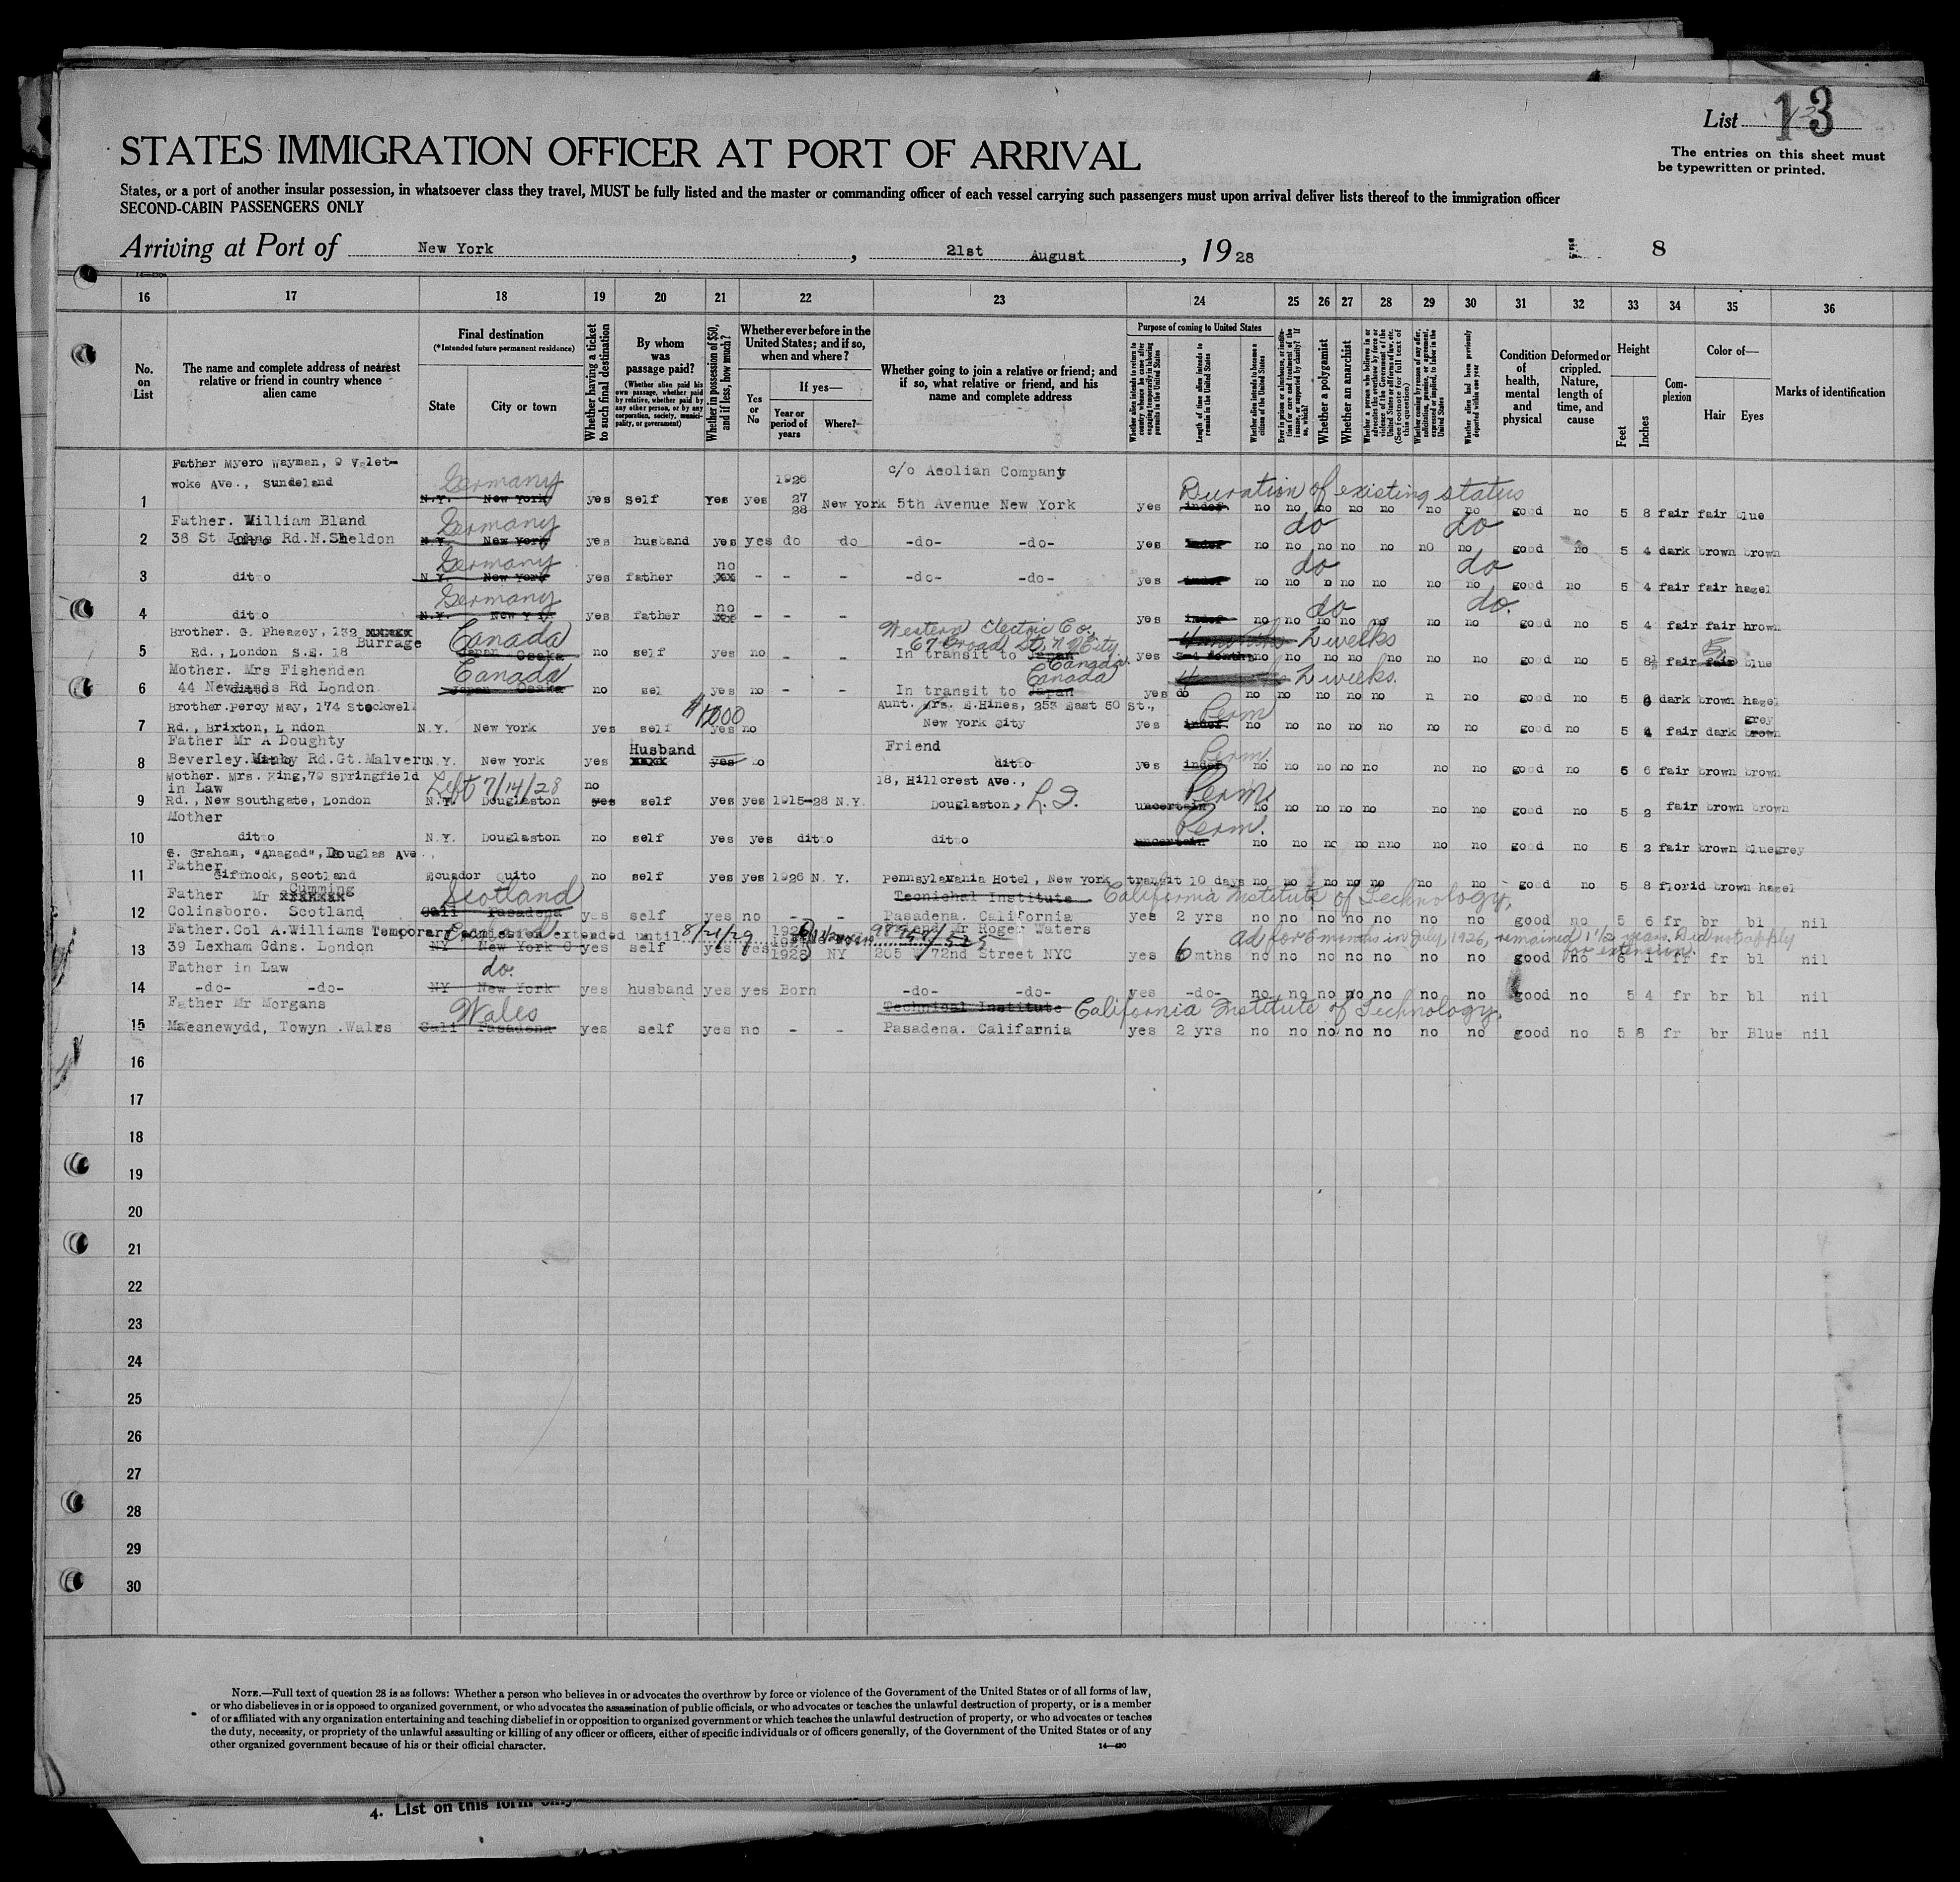 List 13
The entries on this sheet must
be typewritten or printed.
STATES IMMIGRATION OFFICER AT PORT OF ARRIVAL
States, or a port of another insular possession, in whatsoever class they travel, MUST be fully listed and the master or commanding officer of each vessel carrying such passengers must upon arrival deliver lists thereof to the immigration officer
SECOND-CABIN PASSENGERS ONLY
Arriving at Port of New York, 21st August, 1928
8
16 17 18 19 20 21 22 23 24 25 26 27 28 29 30 31 32 33 34 35 36
No. on List
The name and complete address of nearest relative or friend in country whence alien came
Final destination
(*Intended future permanent residence)
State
City or town
Whether having a ticket to such final destination
By whom was passage paid?
(Whether alien paid his own passage, whether paid by relative, whether paid by any other person, or by any corporation, society, municipality, or government)
Whether in possession of $50, and if less, how much?
Whether ever before in the United States; and if so, when and where?
Yes or No
If yes—
Year or period of years
Where?
Whether going to join a relative or friend; and if so, what relative or friend, and his name and complete address
Purpose of coming to United States
Length of time alien intends to remain in the United States
Whether alien intends to become a citizen of the United States
Whether a polygamist
Whether an anarchist
Condition of health, mental and physical
Deformed or crippled. Nature, length of time, and cause
Height
Feet
Inches
Complexion
Color of—
Hair
Eyes
Marks of identification
Father Myero Wayman, 9 Valet-
c/o Aeolian Company
woke Ave., Sundeland Germany 1926 Duration of existing status
1 N.Y. New York yes self Yes yes 27 28 New York 5th Avenue New York yes indef no no no no no no no good no 5 8 fair fair blue
Father. William Bland Germany do do
2 38 St Johns Rd.N.Sheldon N.Y. New York yes husband yes yes do do -do- -do- yes indef no no no no no no no good no 5 4 dark brown brown
Germany no do do
3 ditto N.Y. New York yes father xx - - - -do- -do- yes indef no no no no no no no good no 5 4 fair fair hazel
Germany no do do.
4 ditto N.Y. New York yes father xx - - - yes indef no no no no no no no good no 5 4 fair fair brown
Brother. G. Pheazey, 132 xxxxx Burrage Canada Western Electric Co. 67 Broad St, N Y City 2 weeks
5 Rd., London S.E. 18 Japan Osaka no self yes no - - In transit to Japan Canada. yes 3-4 months no no no no no no no good no 5 8½ fair fair blue
Mother. Mrs Fishenden Canada Canada 2 weeks.
6 44 Newlands Rd London Japan Osaka no sel yes no - - In transit to Japan yes do no no no no no no n no good no 5 8 dark brown hazel
Brother.Percy May, 174 Stockwell $1000 Aunt. Mrs. E.Hines, 253 East 50 St., Perm grey
7 Rd., Brixton, L ndon N.Y. New York yes self yes no New York City yes indef. no no no no no no no good no 5 4 fair dark brown
Father Mr A Doughty Husband Friend Perm.
8 Beverley. Manby Rd.Gt.Malvern N.Y. New York yes xxxx yes no ditto yes indef no no no no no no no good no 5 6 fair brown brown
Mother. Mrs. King,79 Springfield Left 7/14/28 no 18, Hillcrest Ave., Perm.
in Law
9 Rd., New Southgate, London N.Y. Douglaston yes self yes yes 1915-28 N.Y. Douglaston, L.I. uncertain no no no no no no no good no 5 2 fair brown brown
Mother Perm.
10 ditto N.Y. Douglaston no self yes yes ditto ditto uncertain no no no no nno no no good no 5 2 fair brown bluegrey
G. Graham, "Anagad", Douglas Ave.,
Father
11 Giffnock, Scotland Ecuador Quito no self yes yes 1926 N.Y. Pennsylavania Hotel, New York transit 10 days no no no no no no no good no 5 8 florid brown hazel
Father Mr Cumming Scotland Tecnichal Institute California Institute of Technology,
12 Colinsboro. Scotland Cali Pasadena yes self yes no - - Pasadena. California yes 2 yrs no no no no no no no good no 5 6 fr br bl nil
Father.Col A.Williams Temporary admission extended until 8/21/29 Friend Mr Roger Waters
ad for 6 months in July, 1926, remained 1 1/2 years. Did not apply for extension.
13 39 Lexham Gdns. London NY New York C yes self yes yes 1928 NY 205 W 72nd Street NYC yes 6 mths no no no no no no no good no 6 1 fr fr bl nil
Father in Law do.
14 -do- -do- NY New York yes husband yes yes Born -do- -do- yes -do- no no no no no no no good no 5 4 fr br bl nil
Father Mr Morgans Wales Technical Institute California Institute of Technology,
15 Maesnewydd, Towyn .Wales Cali Pasadena yes self yes no - - Pasadena. California yes 2 yrs no no no no no no no good no 5 8 fr br Blue nil
16
17
18
19
20
21
22
23
24
25
26
27
28
29
30
NOTE.—Full text of question 28 is as follows: Whether a person who believes in or advocates the overthrow by force or violence of the Government of the United States or of all forms of law,
or who disbelieves in or is opposed to organized government, or who advocates the assassination of public officials, or who advocates or teaches the unlawful destruction of property, or is a member
of or affiliated with any organization entertaining and teaching disbelief in or opposition to organized government or which teaches the unlawful destruction of property, or who advocates or teaches
the duty, necessity, or propriety of the unlawful assaulting or killing of any officer or officers, either of specific individuals or of officers generally, of the Government of the United States or of any
other organized government because of his or their official character.
14—430
4. List on this form only